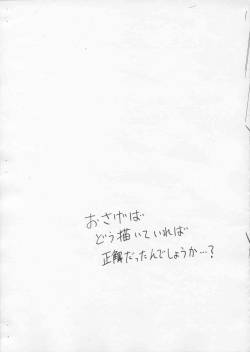 おさげは
どう描いていれば
正解だったんでしょうか…?